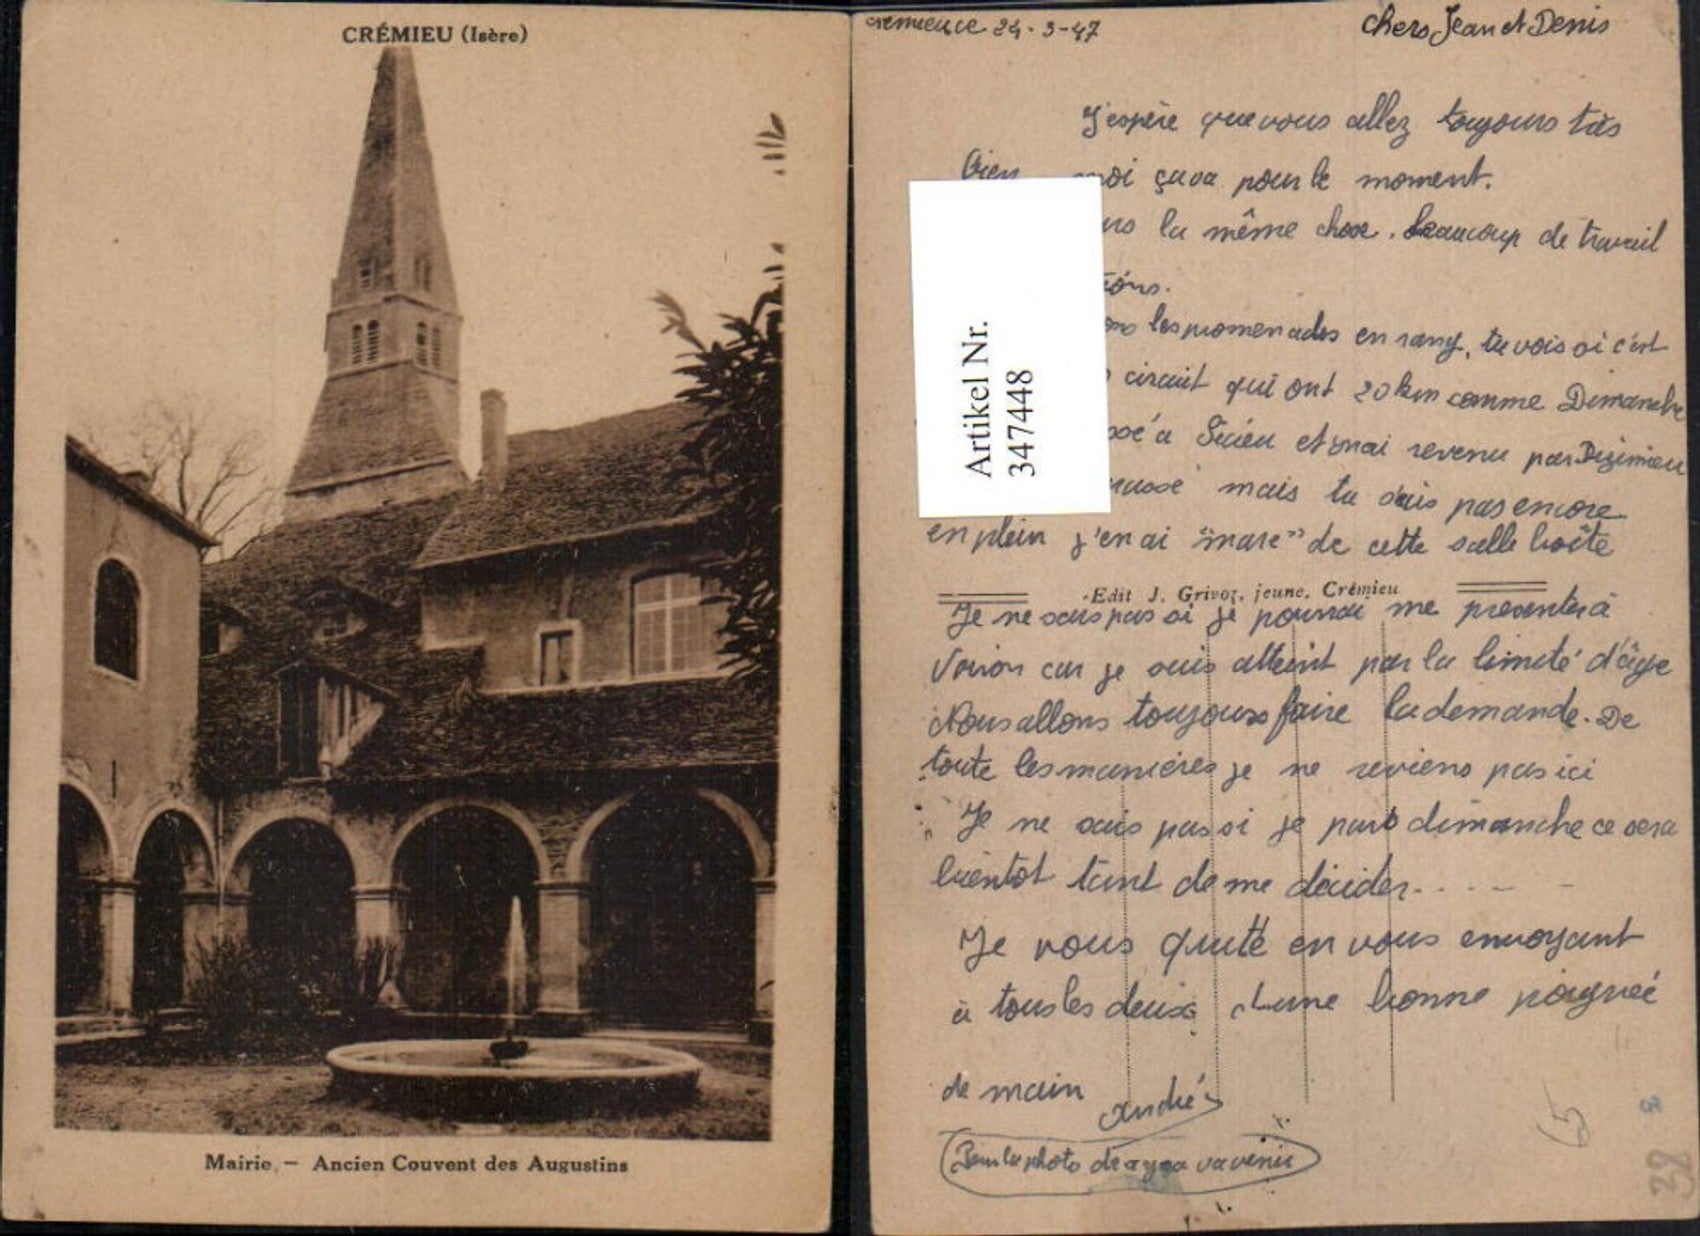 CRÉMIEU (Isère)
Mairie. — Ancien Couvent des Augustins
24-3-47
chers Jean et Denis
J'espère que vous allez toujours très
bien moi ça va pour le moment.
la même chose. beaucoup de travail
les promenades en rang, tu vois si c'est
circuit qui ont 20 km comme Dimanche
à et mai revenu par Dizimieu
mais tu sais pas encore
en plein j'en ai "mare" de cette salle boîte
Edit J. Grivoz, jeune, Crémieu
Je ne sais pas si je pourrai me presenter à
Voiron car je suis atteint par la limite d'âge
Nous allons toujours faire la demande. De
toute les manieres je ne reviens pas ici
Je ne sais pas si je pars dimanche ce sera
bientot tant de me décider....
Je vous quitte en vous envoyant
à tous les deux une bonne poignée
de main
André
la photo va venir
Artikel Nr.
347448
65